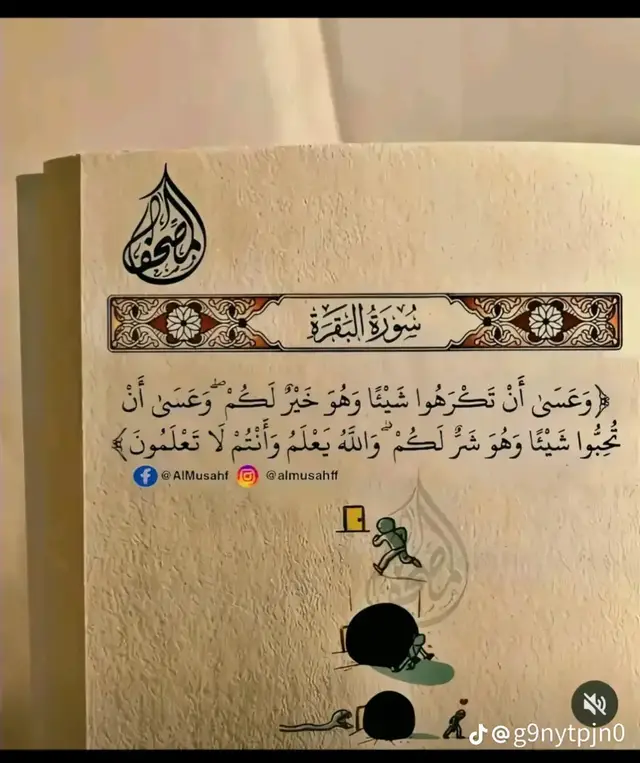 المصحف
سُورَةُ البَقَرَةِ
﴿وَعَسَىٰ أَنْ تَكْرَهُوا شَيْئًا وَهُوَ خَيْرٌ لَكُمْ ۖ وَعَسَىٰ أَنْ
تُحِبُّوا شَيْئًا وَهُوَ شَرٌّ لَكُمْ ۗ وَاللَّهُ يَعْلَمُ وَأَنْتُمْ لَا تَعْلَمُونَ﴾
@AlMusahf @almusahff
المصحف
@g9nytpjn0